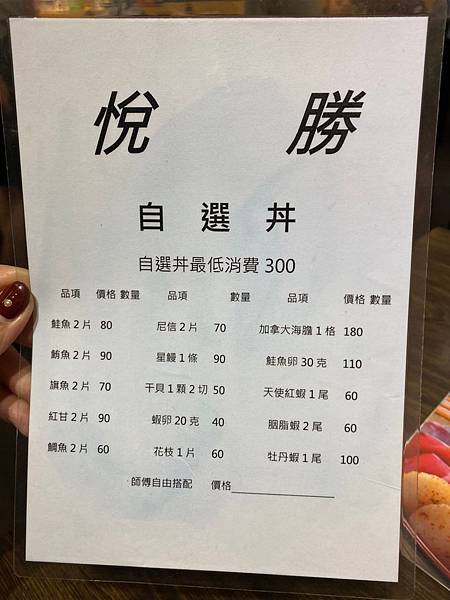 悅 勝
自 選 丼
自選丼最低消費 300
品項 價格 數量 品項 數量 品項 價格 數量
鮭魚 2 片 80 尼信 2 片 70 加拿大海膽 1 格 180
鮪魚 2 片 90 星鰻 1 條 90 鮭魚卵 30 克 110
旗魚 2 片 70 干貝 1 顆 2 切 50 天使紅蝦 1 尾 60
紅甘 2 片 90 蝦卵 20 克 40 胭脂蝦 2 尾 60
鯛魚 2 片 60 花枝 1 片 60 牡丹蝦 1 尾 100
師傅自由搭配 價格